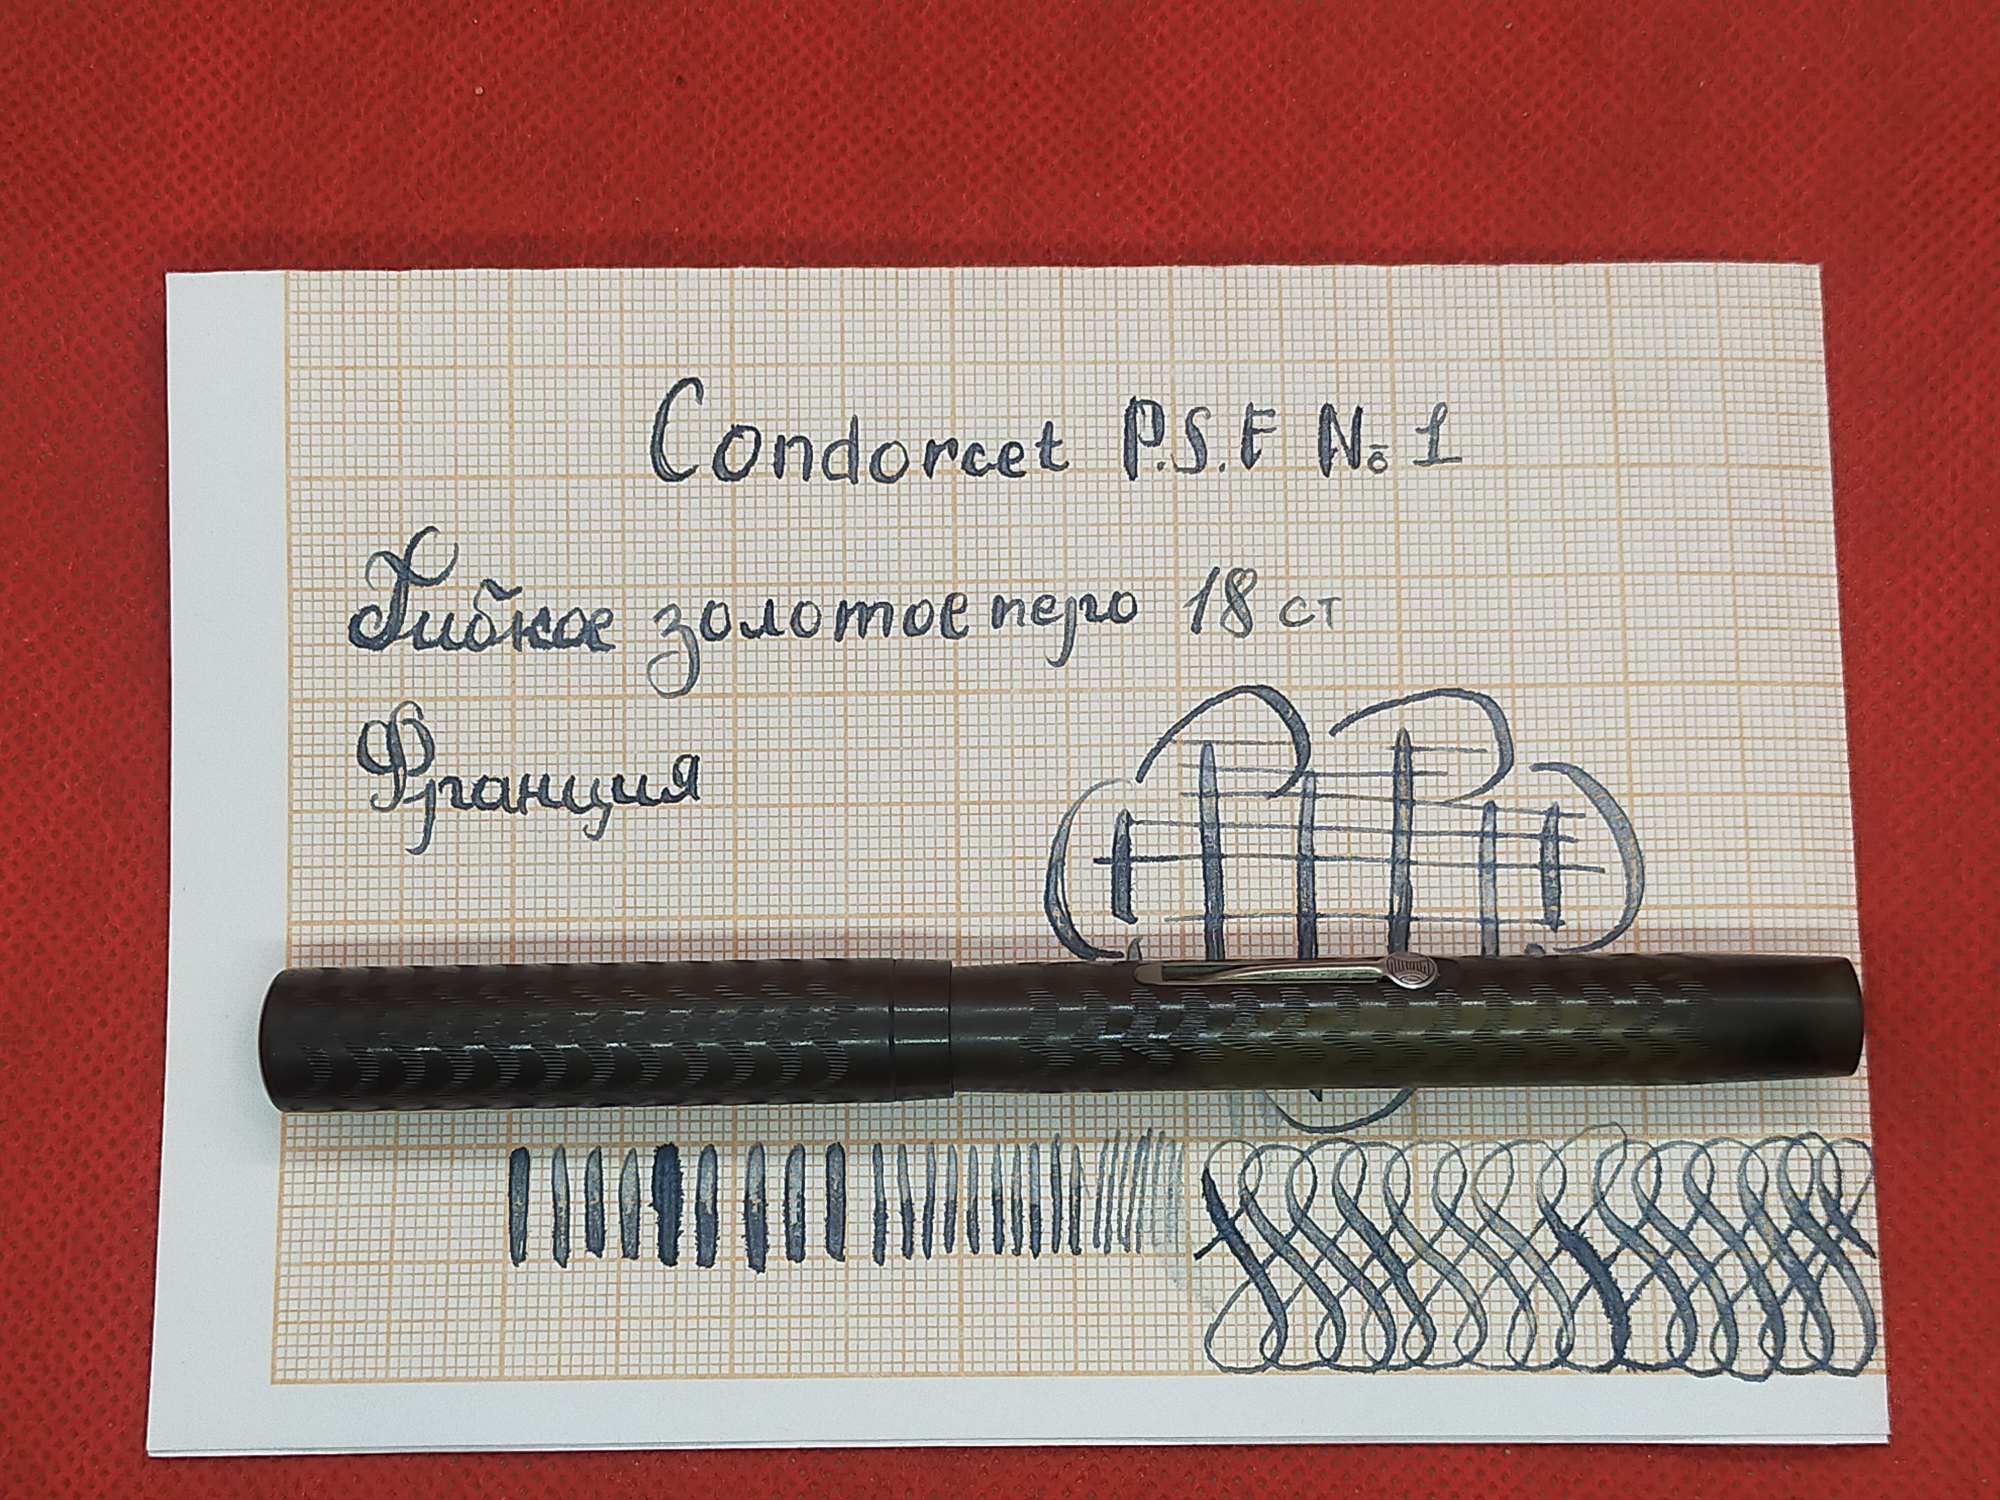 Condorcet P.S.F №1
Гибкое золотое перо 18 ст
Франция